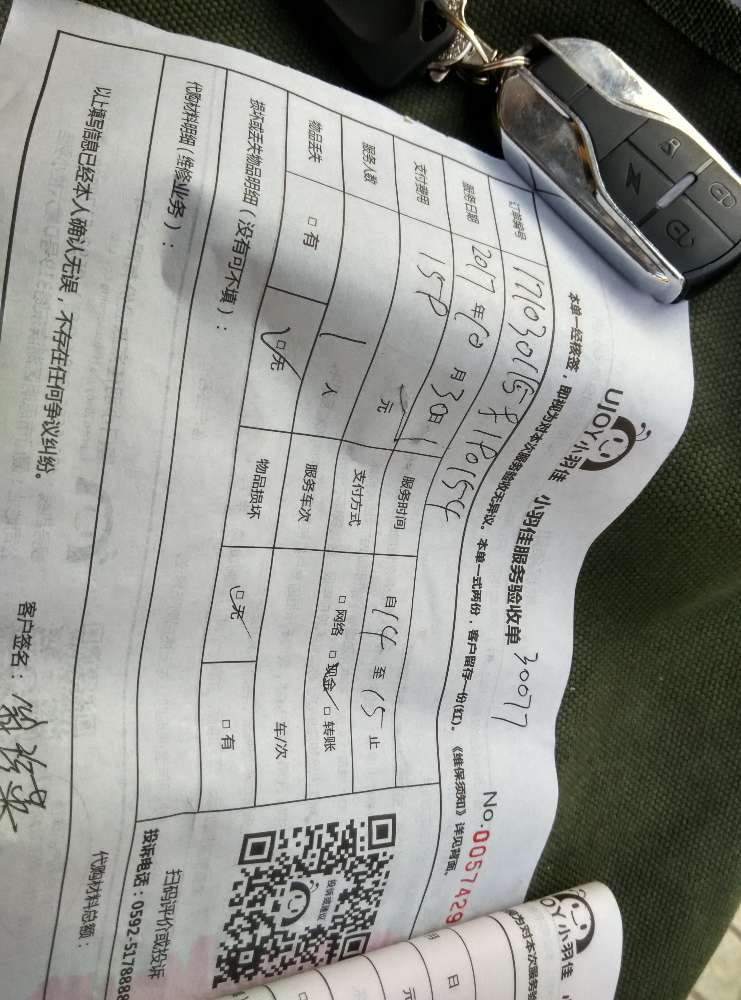 UJOY小羽佳 小羽佳服务验收单 30077 No:0057429
本单一经核签，即视为对本次服务验收无异议。本单一式两份，客户留存一份(红)。《维保须知》详见背面。
订单编号
服务日期 2017 年 10 月 30日 服务时间 自 14 至 15 止
支付费用 150 元 支付方式 □ 网络 □ 现金 □ 转账
服务人数 1 人 服务车次 车/次
物品丢失 □ 有 □ 无 物品损坏 □ 无 □ 有
损坏或丢失物品明细（没有可不填）：
代购材料明细（维修业务）：
代购材料总额：
以上填写信息已经本人确认无误，不存在任何争议纠纷。
客户签名：
投诉或建议
扫码评价或投诉
投诉电话：0592-5178888
UJOY小羽佳
视为对本次服务验
月 日
元